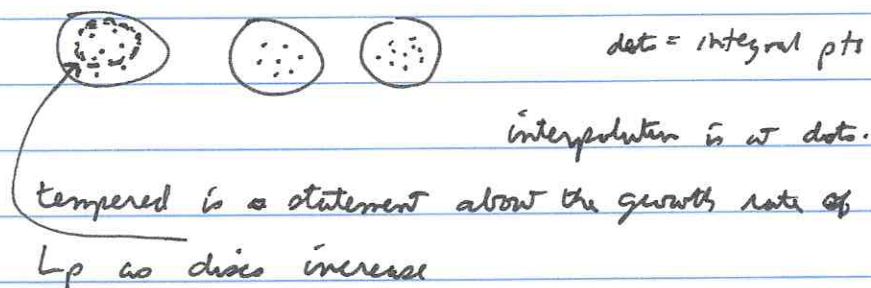 dots = integral pts
interpolation is at dots.
tempered is a statement about the growth rate of
Lp as discs increase